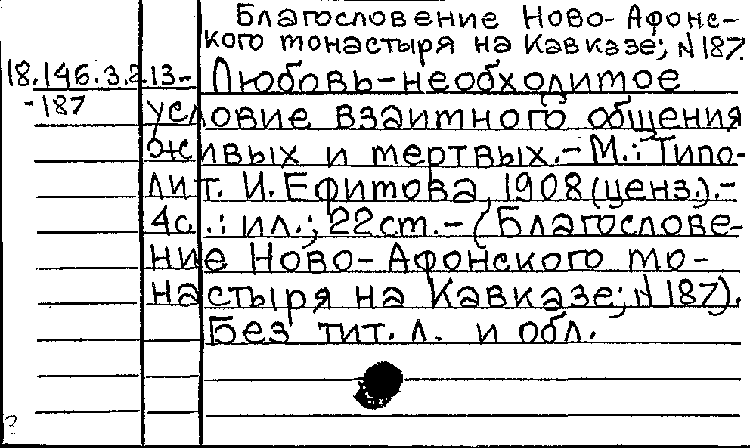 Благословение Ново-Афонс-
кого монастыря на Кавказе; N 187.
18.146.3.2.13- Любовь-необходимое
-187 условие взаимного общения
живых и мертвых.-М.: Типо-
лит. И. Ефимова, 1908 (ценз.).-
4с.: ил.; 22см.-(Благослове-
ние Ново-Афонского мо-
настыря на Кавказе; N 187).
Без тит. л. и обл.